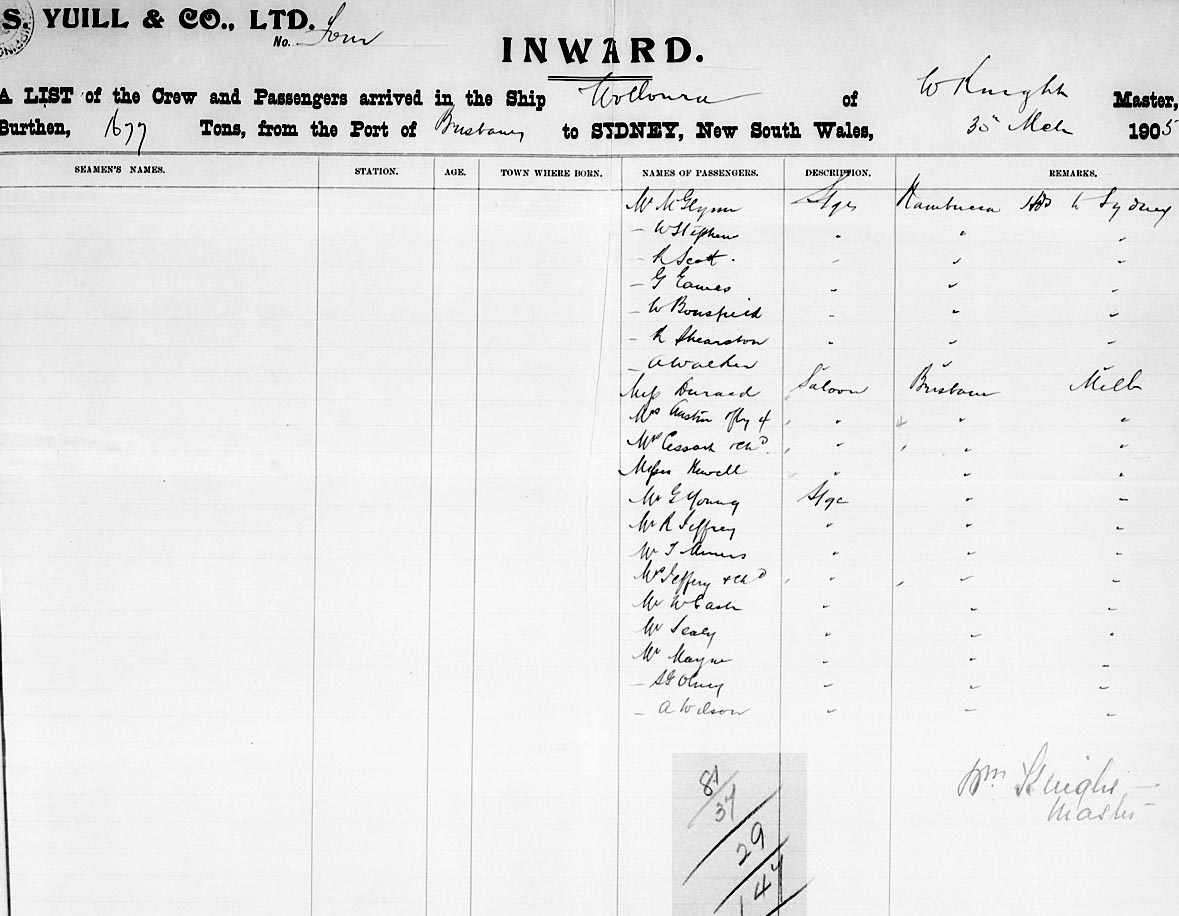 S. YUILL & CO., LTD.
No. Four
INWARD.
A LIST of the Crew and Passengers arrived in the Ship Wollowra of W Knight Master,
Burthen, 1677 Tons, from the Port of Brisbane to SYDNEY, New South Wales, 1905
SEAMEN'S NAMES. STATION. AGE. TOWN WHERE BORN. NAMES OF PASSENGERS. DESCRIPTION. REMARKS.
Mr McGlynn Stge to Sydney
– W Stephen " " "
– R Scott. " " "
– G Eames " " "
– W Bousfield " " "
– R Shearston " " "
– A Walker " "
Miss Durand Saloon Brisbane Melb
Mrs Austin " " "
Mrs " " "
Misses Newell " " "
Mr G Young Stge " "
Mr R Jeffrey " " "
Mr T " " "
Mrs Jeffery + chd " " "
Mr W Cash " " "
Mr Sealy " " "
Mr Mayne " " "
– Olney " " "
– A Wilson " " "
Wm Knight
Master
81
37
29
147